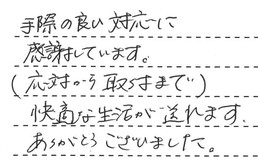 手際の良い対応に
感謝しています。
(応対から取付まで)
快適な生活が送れます.
ありがとうございました。